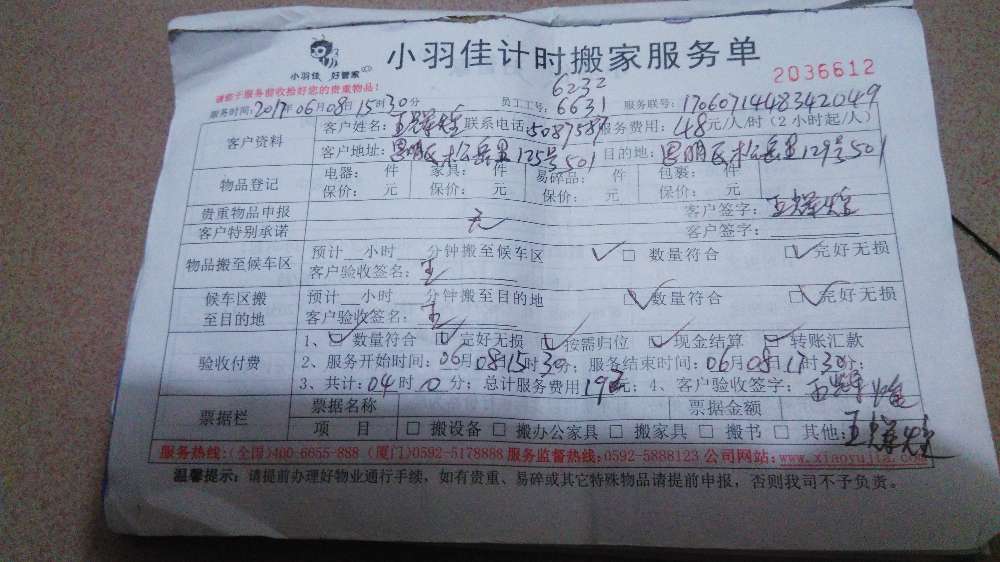 小羽佳 好管家
小羽佳计时搬家服务单
2036612
请您于服务前收拾好您的贵重物品!
服务时间:2017年06月08日15时30分 员工工号:6232 6631 服务联号:1706071448342049
客户资料 客户姓名: 联系电话: 服务费用:48元/人/时(2小时起/人)
客户地址:思明区松岳里125号501 目的地:思明区松岳里129号501
物品登记 电器: 件 家具: 件 易碎品: 件 包裹: 件
保价: 元 保价: 元 保价: 元 保价: 元
贵重物品申报 无 客户签字:
客户特别承诺 客户签字:
物品搬至候车区 预计__小时__分钟搬至候车区 ☑ 数量符合 ☑ 完好无损
客户验收签名:王
候车区搬至目的地 预计__小时__分钟搬至目的地 ☑ 数量符合 ☑ 完好无损
客户验收签名:王
验收付费 1、☑ 数量符合 ☑ 完好无损 ☑ 按需归位 ☑ 现金结算 ☑ 转账汇款
2、服务开始时间:06月08日15时30分;服务结束时间:06月08日17时30分;
3、共计:04时10分;总计服务费用192元;4、客户验收签字:
票据栏 票据名称 票据金额
项 目 □ 搬设备 □ 搬办公家具 □ 搬家具 □ 搬书 □ 其他:
服务热线:(全国)400-6055-888 (厦门)0592-5178888 服务监督热线:0592-5888123 公司网站:www.xiaoyujia.com
温馨提示:请提前办理好物业通行手续,如有贵重、易碎或其它特殊物品请提前申报,否则我司不予负责。